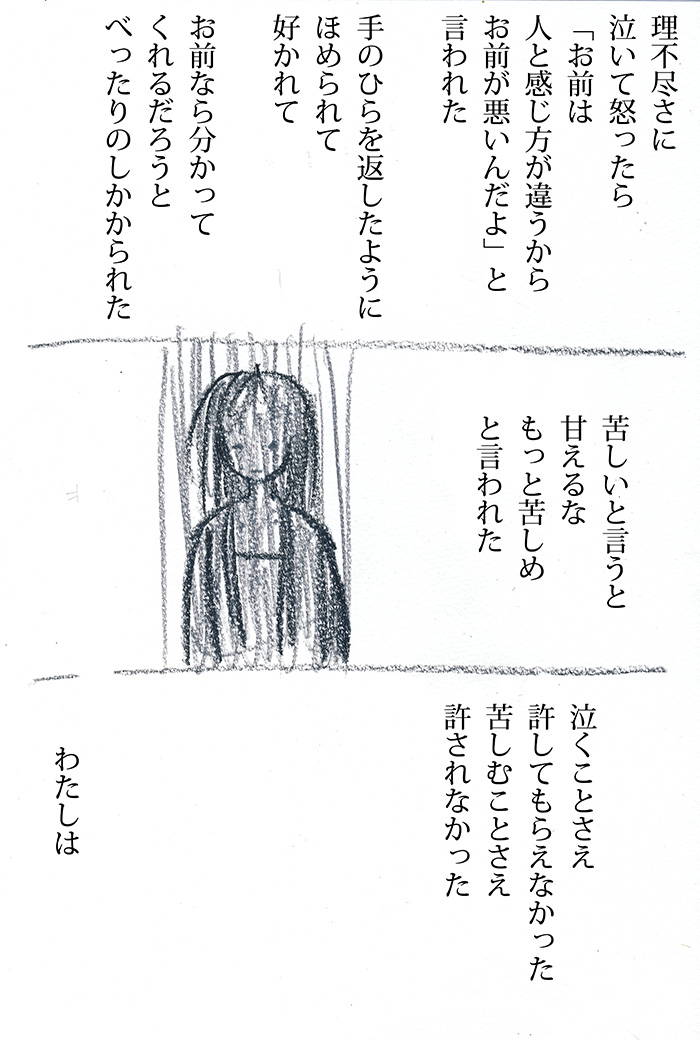 理不尽さに
泣いて怒ったら
「お前は
人と感じ方が違うから
お前が悪いんだよ」と
言われた
手のひらを返したように
ほめられて
好かれて
お前なら分かって
くれるだろうと
べったりのしかかられた
苦しいと言うと
甘えるな
もっと苦しめ
と言われた
泣くことさえ
許してもらえなかった
苦しむことさえ
許されなかった
わたしは